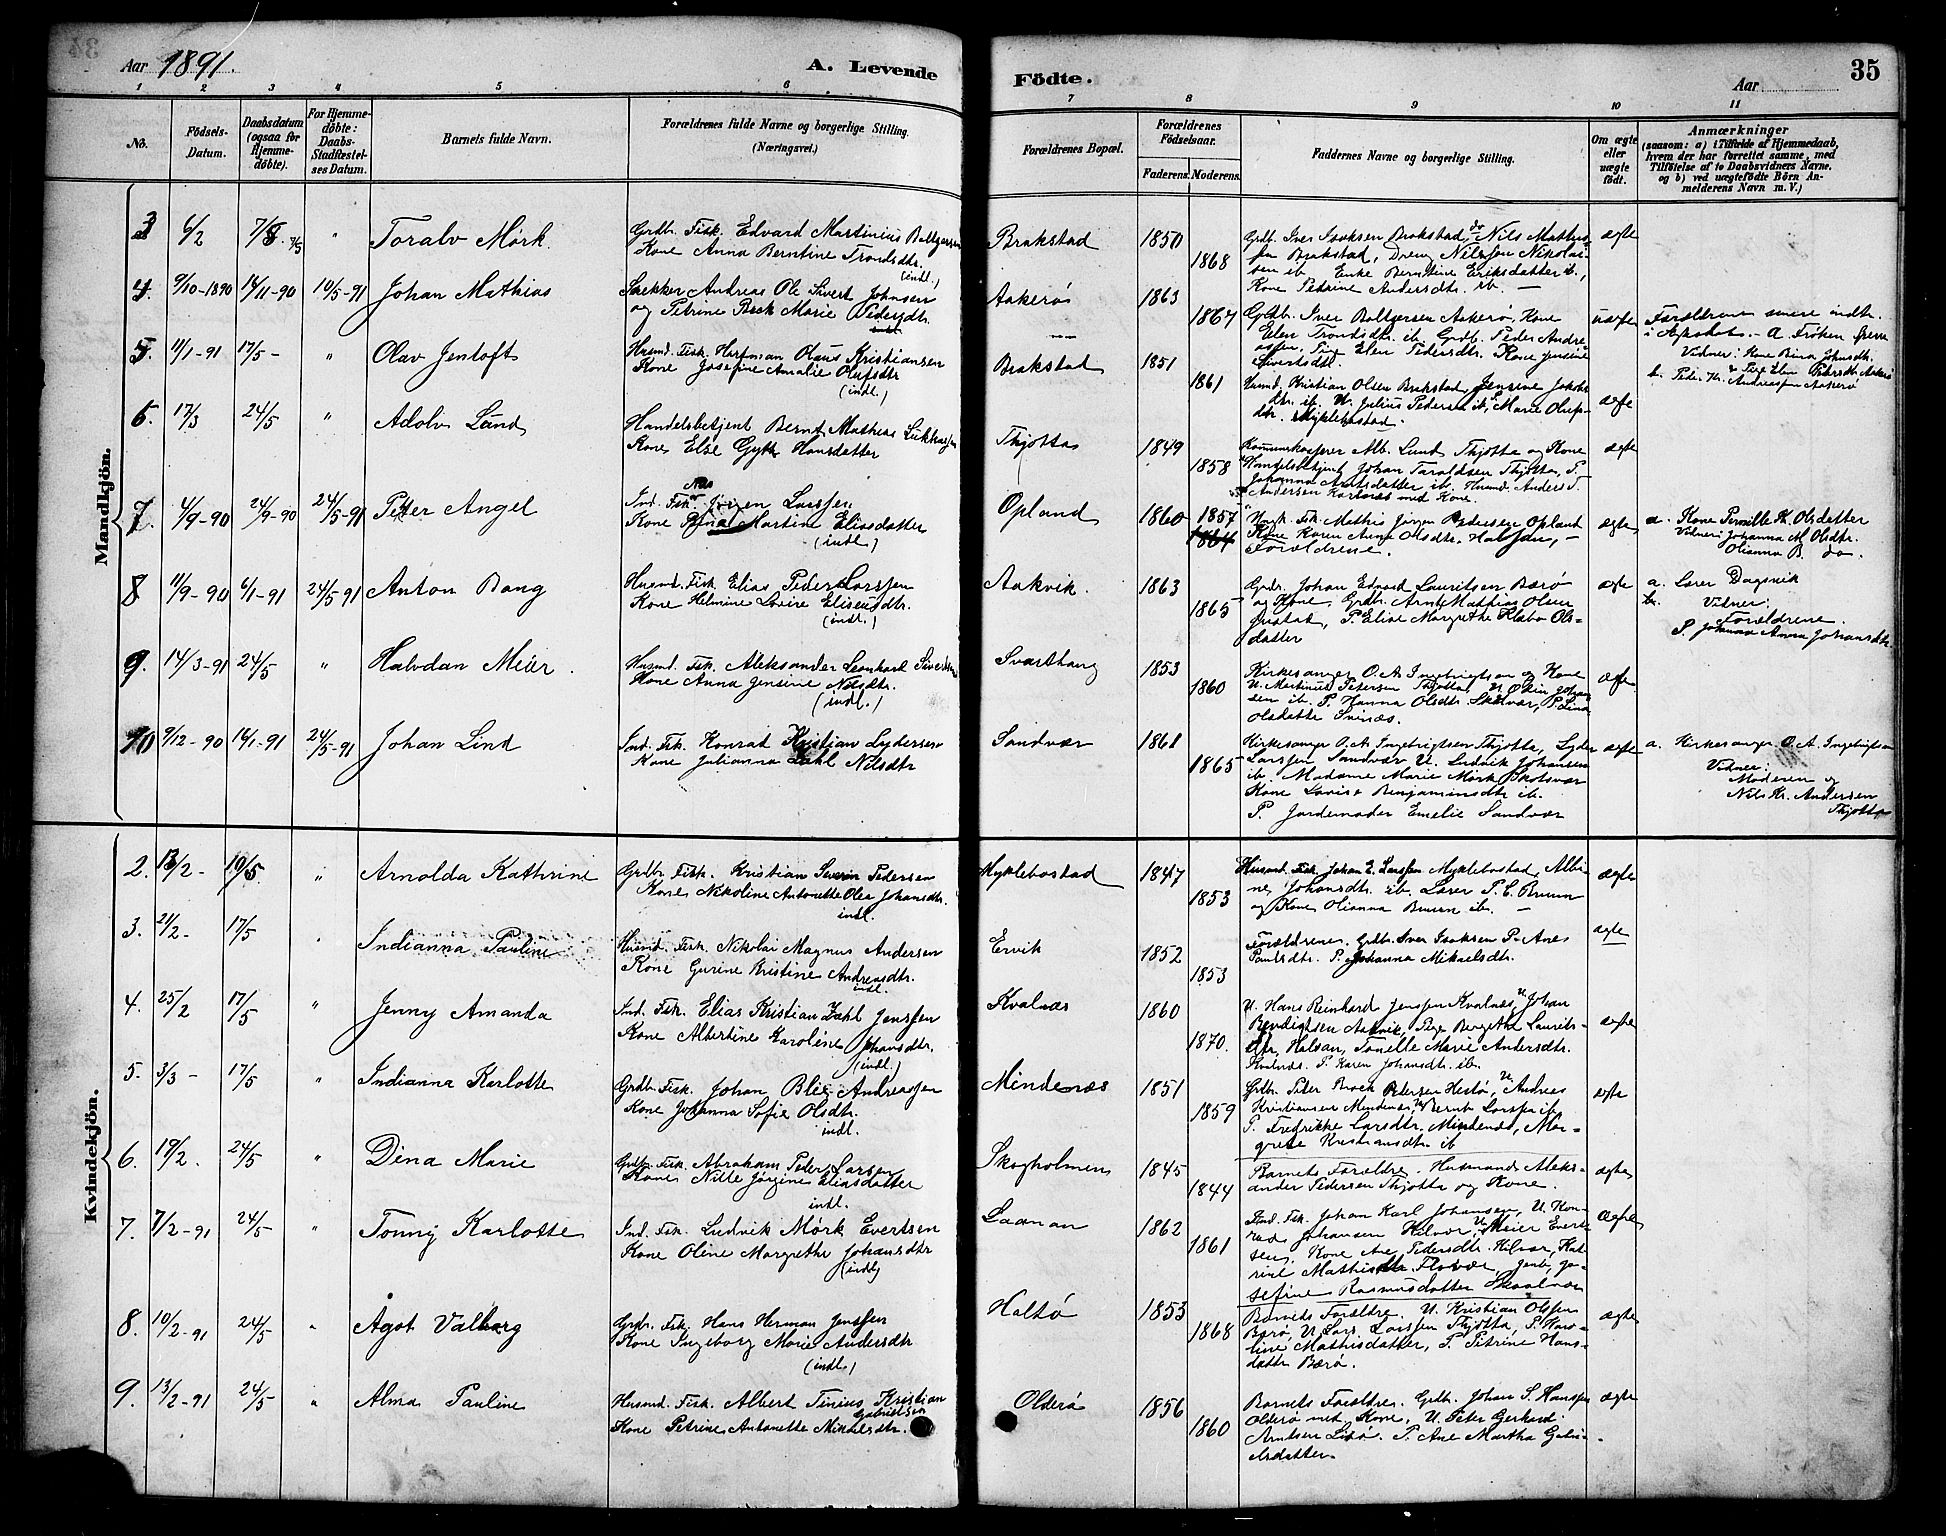 34
Aar 1891.
A. Levende
Födte.
Aar
35
1 2 3 4 5 6 7 8 9 10 11
No.
Födsels-
Datum.
Daabsdatum
(ogsaa for
Hjemme-
döbte).
For Hjemme-
döbte:
Daabs-
Stadfæstel-
ses Datum.
Barnets fulde Navn.
Forældrenes fulde Navne og borgerlige Stilling.
(Næringsvei.)
Forældrenes Bopæl.
Forældrenes
Födselsaar.
Faderens. Moderens.
Faddernes Navne og borgerlige Stilling.
Om ægte
eller
uægte
födt.
Anmærkninger
(saasom: a) i Tilfælde af Hjemmedaab,
hvem der har forrettet samme, med
Tilföielse af to Daabsvidners Navne,
og b) ved uægtefödte Börn An-
melderens Navn m. V.)
Mandkjön.
3 6/2 7/5 " Toralv Mörk.
Grdb. Fisk. Edvard Martinius Boltgersen
Kone Anna Berntine Trondsdtr.
(indl.)
Brakstad 1850 1868
Grdb. Iver Isaksen Brakstad, do Nils Mathis-
sen Brakstad, Dreng Nilsjen Nikolai-
sen ib. Enke Berntine Eriksdatter ib.,
Kone Petrine Andersdtr. ib. —
ægte
4. 9/10-1890 14/11-90 10/5-91 Johan Mathias
Snekker Andreas Ole Sivert Johnsen
og Petrine Beck Marie Pedersdtr.
indl.
Aakerö 1863 1867
Grdb. Iver Boltgersen Aakerö, Kone
Elen Trondsdtr. ib. Grdb. Peder Andre-
assen, Pige Elen Pedersdtr. Kone Jensine
Sivertsdtr.
uægte
Forældrene senere indtr.
i Ægteskab. — A. Fröken
Vidner: Kone Johnsdtr.
& Pige Elen Pedersdtr. Aakerö
b. Peder Kr. Andreassen Aakerö
5. 11/1-91 17/5- " Olav Jentoft
Husmd. Fisk. Olaus Kristiansen
Kone Josefine Amalie Olufsdtr
(indl.)
Brakstad 1851 1861
Husmd. Kristian Olsen Brakstad, Jensine Jakobs-
dtr. ib. U. Julius Pedersen ib., P. Marie Olufs-
dtr. Myklebostad.
ægte
6. 17/3 24/5 " Adolv Lund
Handelsbetjent Bernt Mathias
Kone Else Hansdatter
Thjötta 1849 1858
Alb. Lund Thjötta og Kone
Handelsbetjent Johan Taraldsen Thjötta, P.
Johanna Arntsdatter ib. Husmd. Anders T.
Andersen med Kone.
ægte
7. 4/9-90 24/9-90 24/5-91 Peter Angel
Ind. Fisk. Jörgen Larssen
Kone Martine Eliasdatter
(indl.)
Opland 1860 1857 1864
Fisk. Mathis Jörgen Pedersen Opland
Kone Karen Anna Olsdtr. Halsan, —
Forældrene.
ægte
a. Kone Pernille K. Olsdatter
Vidner: Johanna M. Olsdtr.
Olianna B. do.
8 11/9-90 6/1-91 24/5-91 Anton Bang
Husmd. Fisk. Elias Peder Larssen
Kone Helmine Lovise Elisensdtr.
(indl.)
Aakvik. 1863 1865
Grdb. Johan Edvard Lauritsen Bærö
og Kone, Grdb. Arnt Mathias Olsen
P. Elise Margrethe Ols-
datter
ægte
a. Lærer Dagsvik
b. Vidner:
Forældrene.
P. Johanna Anna Johansdtr.
9. 14/3-91 24/5 " Halvdan Meier.
Husmd. Fisk. Aleksander Leonhard Sivertsen
Kone Anna Jensine Nilsdtr.
(indl.)
Svarthaug 1853 1860
Kirkesanger O. A. Ingebrigtsen og Kone
U. Martinus Petersen Thjötta, U. Johan-
sen ib. P. Hanna Olsdtr. P. Lina
Olsdatter
ægte
10 9/12-90 16/1-91 24/5-91 Johan Lind
Ind. Fisk. Konrad Kristian Lydersen
Kone Julianna Dahl Nilsdtr
Sandvær 1861 1865
Kirkesanger O. A. Ingebrigtsen Thjötta, Lyder
Larssen Sandvær U. Ludvik Johansen
ib. Madame Marie Mörk Skotsvær
Kone Lovise Benjaminsdtr ib.
P. Jordemoder Emelie Sandvær
ægte
a. Kirkesanger O. A. Ingebrigtsen
Vidner:
Moderen og
Nils Kr. Andersen
Thjötta
Kvindekjön.
2. 13/2- 10/5. " Arnolda Kathrine
Grdbr. Fisk. Kristian Severin Pedersen
Kone Nikoline Antonette Olea Johansdtr.
indl.
Myklebostad 1847 1853
Husmd. Fisk. Johan E. Larssen Myklebostad, Albi-
ne Johansdtr. ib. Lærer P. C. Bruun
og Kone Olianna Bruun ib. —
ægte
3. 21/2- 17/5 " Indianna Pauline
Husmd. Fisk. Nikolai Magnus Andersen
Kone Gurine Kristine Andreasdtr.
indl.
Ervik 1852 1853
Forældrene. Grdb. Iver Isaksen P. Ane
Paulsdtr. P. Johanna Mikaelsdtr.
ægte
4. 25/2 17/5 " Jenny Amanda
Ind. Fisk. Elias Kristian Zahl Jenssen
Kone Albertine Karoline Johansdtr.
(indl.)
Kvalnæs 1860 1870.
U. Hans Reinhard Jenssen Kvalnæs, U. Johan
Bendigtsen Aakvik, Pige Bergethe Laurits-
dtr. Halsan, Tonelle Marie Andersdtr.
Kvalnæs. P. Karen Johansdtr. ib.
ægte
5. 3/3 - 17/5 " Indianna Karlotte
Grdb. Fisk. Johan Blix Andreassen
Kone Johanna Sofie Olsdtr.
indl.
Mindenæs 1851 1859
Grdb. Peter Brock Petersen Hestö, U. Andreas
Kristiansen Mindenæs, U. Bernt Larssen ib.
P. Fredrikke Larsdtr. Mindenæs, Mar-
grete Kristiansdtr. ib
ægte
6. 19/2. 24/5 " Dina Marie
Grdb. Fisk. Abraham Peder Larsen
Kone Nille Jörgine Eliasdatter
indl.
Skogholmen 1845 1844
Barnets Forældre. Husmand Aleks-
ander Pedersen Thjötta og Kone.
ægte
7. 7/2-91 24/5 " Tonny Karlotte
Ind. Fisk. Ludvik Mörk Evertsen
Kone Oline Margrethe Johansdtr
(indl)
Laanan 1862 1861
Ind. Fisk. Johan Karl Johansen, U. Kon-
rad Johansen Hilvær, U. Meier Evert-
sen, Kone Ane Pedersdtr. Hilvær, Kat-
rine Mathisdtr. Flovær, Jo-
sefine Rasmusdatter Skaalvær
ægte
8. 10/2-91 24/5 " Ågot Valborg
Grdb. Fisk. Hans Herman Jenssen
Kone Ingeborg Marie Andersdtr
(indl.)
Haltö 1853 1868
Barnets Forældre. U. Kristian Olssen
Bærö, U. Lars Larssen Thjötta, P. Karo-
line Mathisdatter, P. Petrine Hans-
datter Bærö.
ægte
9. 13/2-91 24/5 " Alma Pauline
Husmd. Fisk. Albert Tinius Kristian
Gabrielsen
Kone Petrine Antonette Mikkelsdtr.
Olderö 1856 1860
Barnets Forældre. Grdb. Johan S. Hanssen
Olderö med Kone, U. Peter Gerhard
Arntsen P. Ane Martha Gabri-
elsdatter
ægte